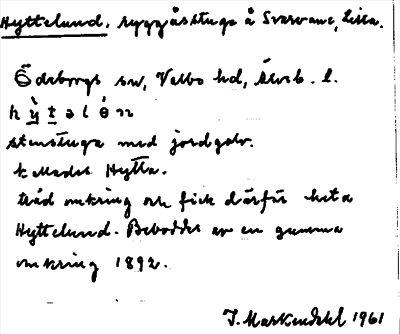 Hyttelund. ryggåsstuga å Svarvane, Lilla.
Ödeborgs sn, Valbo hd, Älvsb. l.
stenstuga med jordgolv.
kallades Hytta.
träd omkring och fick därför heta
Hyttelund. Beboddes av en gumma
omkring 1892.
J. Markendahl 1961